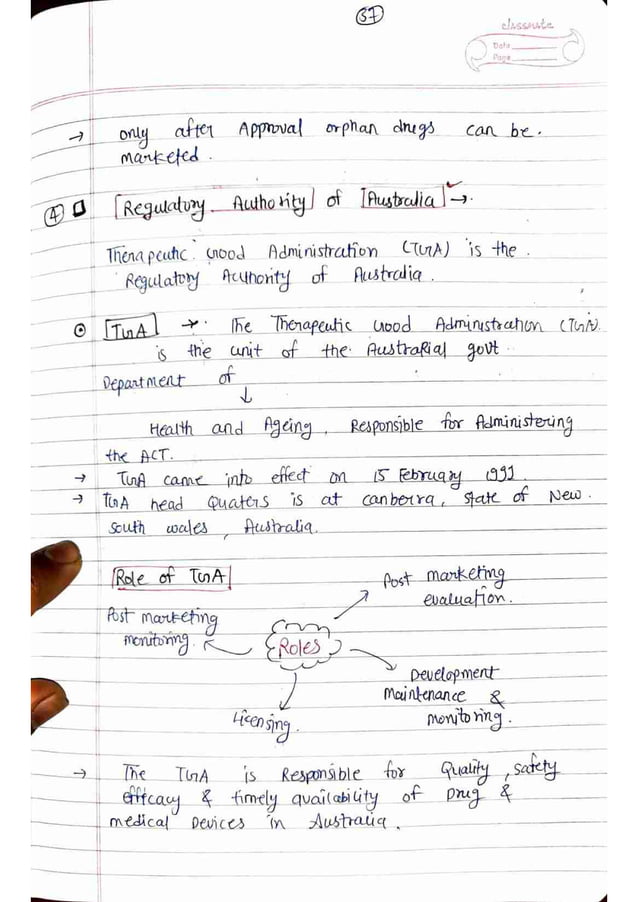 37
classmate
Date
Page
→ only after Approval orphan drugs can be.
marketed.
④ Regulatory Authority of Australia →.
Therapeutic Good Administration (TGA) is the.
Regulatory Authority of Australia.
TGA → The Therapeutic Good Administration (TGA).
is the unit of the Australial govt.
Department of
↓
Health and Ageing, Responsible for Administering
the ACT.
→ TGA came into effect on 15 February 1991
→ TGA head Quaters is at canberra, state of New.
south wales, Australia.
Role of TGA
Post marketing
evaluation.
Post marketing
monitoring.
Roles
Development
Maintenance &
monitoring.
Licensing.
→ The TGA is Responsible for Quality, safety
efficacy & timely availability of Drug &
medical Devices in Australia.